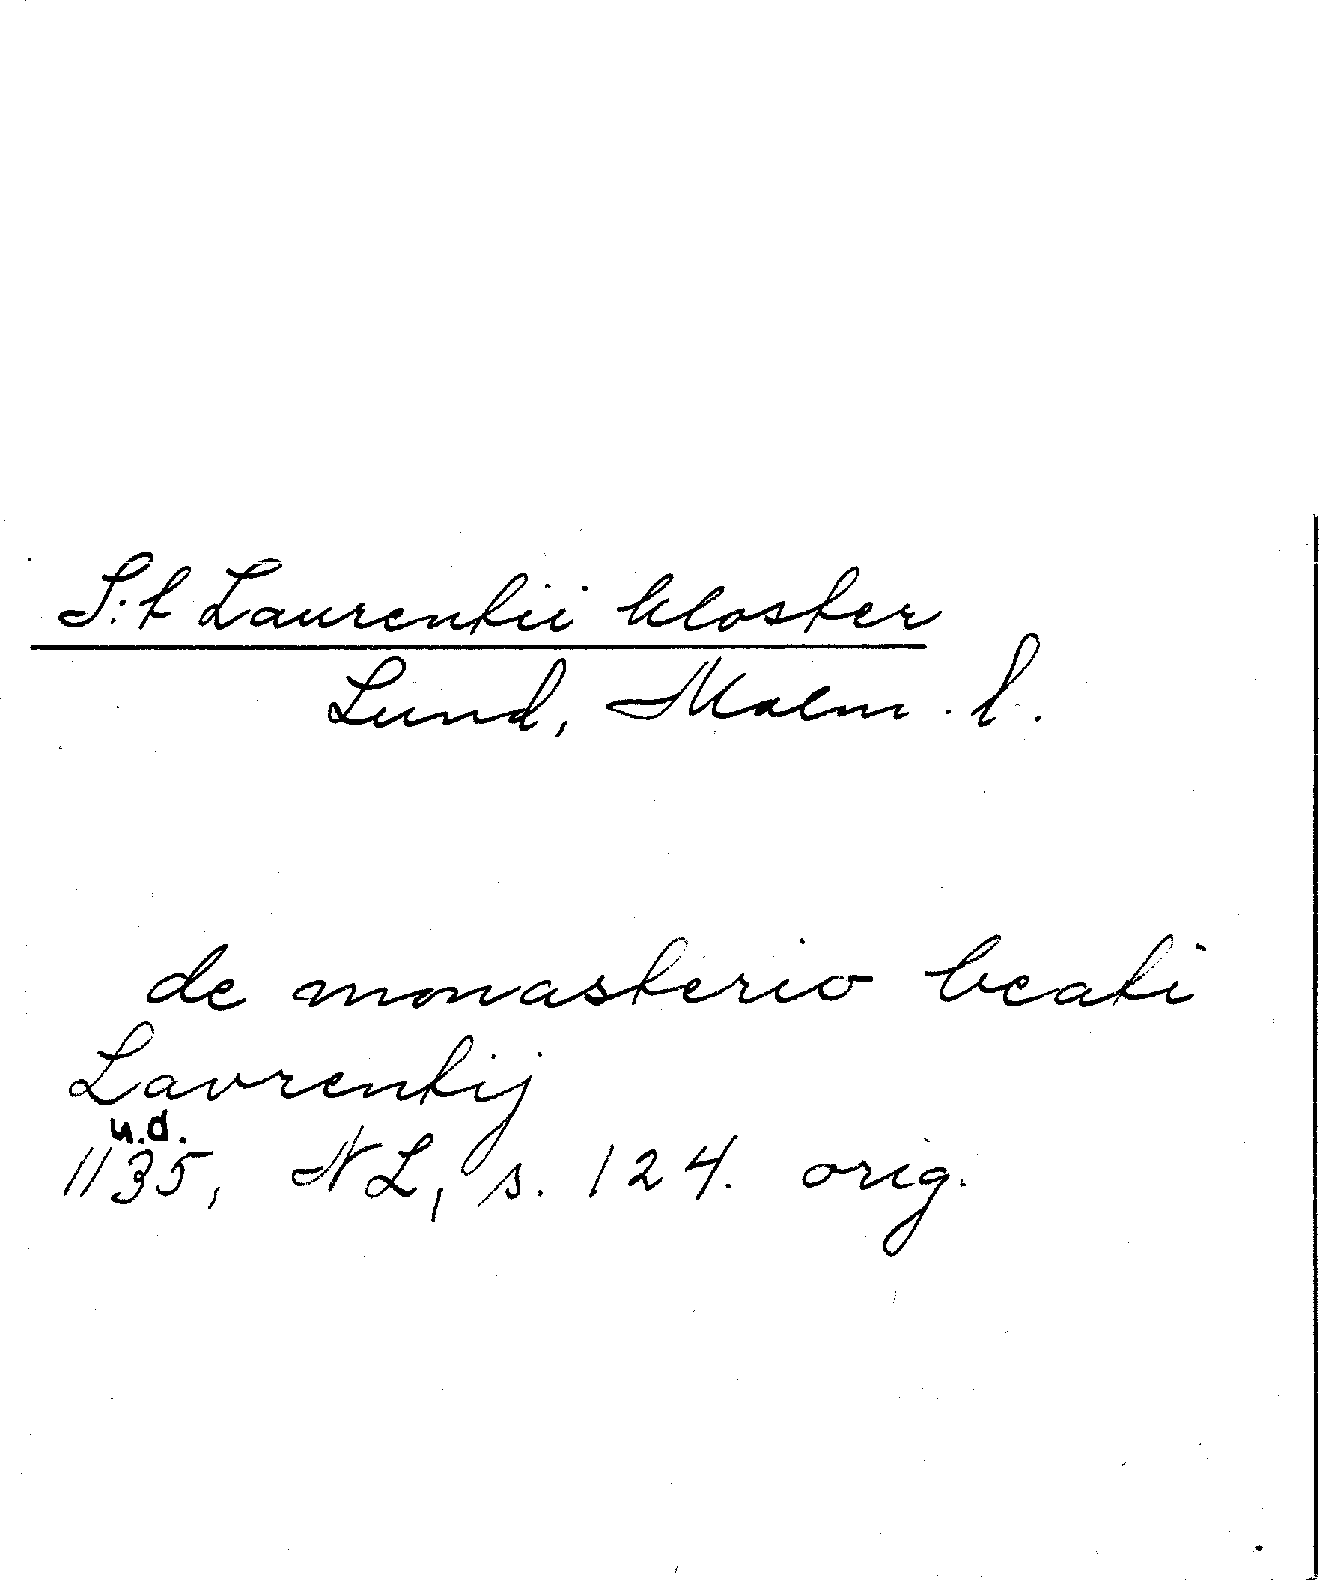 S:t Laurentii kloster
Lund, Malm. l.
de monasterio beati
Lavrentij
u.d.
1135, NL, s. 124. orig.